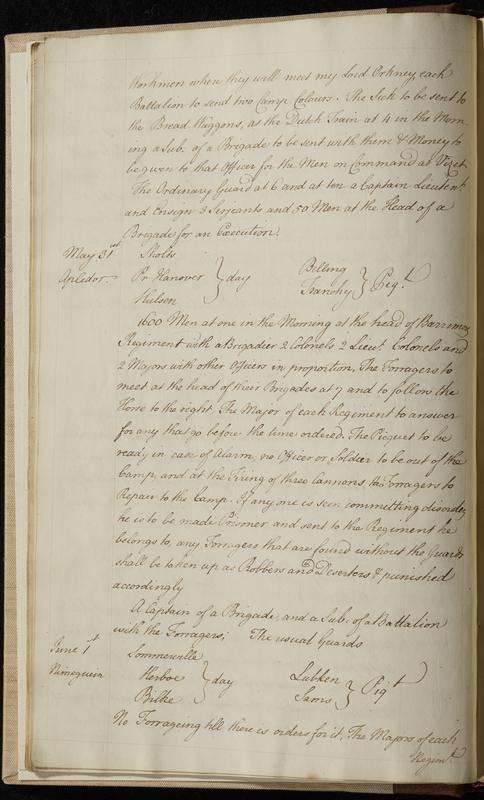 Workmen when they will meet my Lord Orkney, each
Battalion to send two Camp Colours. The Sick to be sent to
the Bread Waggons, at the Dutch Train at 4 in the Morn
ing a Sub. of a Brigade to be sent with them & Money to
be given to that Officer for the Men on Command at Viset
The Ordinary Guard at 6 and at ten a Captain Lieutent
and Ensign 3 Serjeants and 50 Men at the Head of a
Brigade for an Execution.
May 31st Sholts
Apledor. Pr. Hanover } day Belling } Piqt.
Hulsen Franchy
1600 Men at one in the Morning at the head of Barrimores
Regiment with a Brigadier 2 Colonels 2 Lieut. Colonels and
2 Majors with other Officers in proportion, The Forragers to
meet at the head of their Brigades at 7 and to follow the
Horse to the right. The Major of each Regiment to answer
for any that go before the time ordered. The Picquet to be
ready in case of Alarm, no Officer or Soldier to be out of the
Camp, and at the Firing of three Cannons, the Forragers to
Repair to the Camp. If any one is seen committing disorder,
he is to be made Prisoner and sent to the Regiment he
belongs to, any Forragers that are found without the Guards
shall be taken up as Robbers and Deserters & punished
accordingly
A Captain of a Brigade, and a Sub. of a Battalion
with the Forragers; The usual Guards
June 1st Sommerville
Nimeguin Herboe } day Lubken } Piqt
Bilke Sams
No Forrageing till there is orders for it, The Majors of each
Regimt.